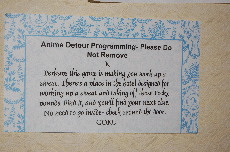 Anime Detour Programming- Please Do
Not Remove
Perhaps this game is making you work up a
sweat. There's a place in the hotel designed for
working up a sweat and taking off those tricky
pounds. Find it, and you'll find your next clue.
No need to go inside- check around the door.